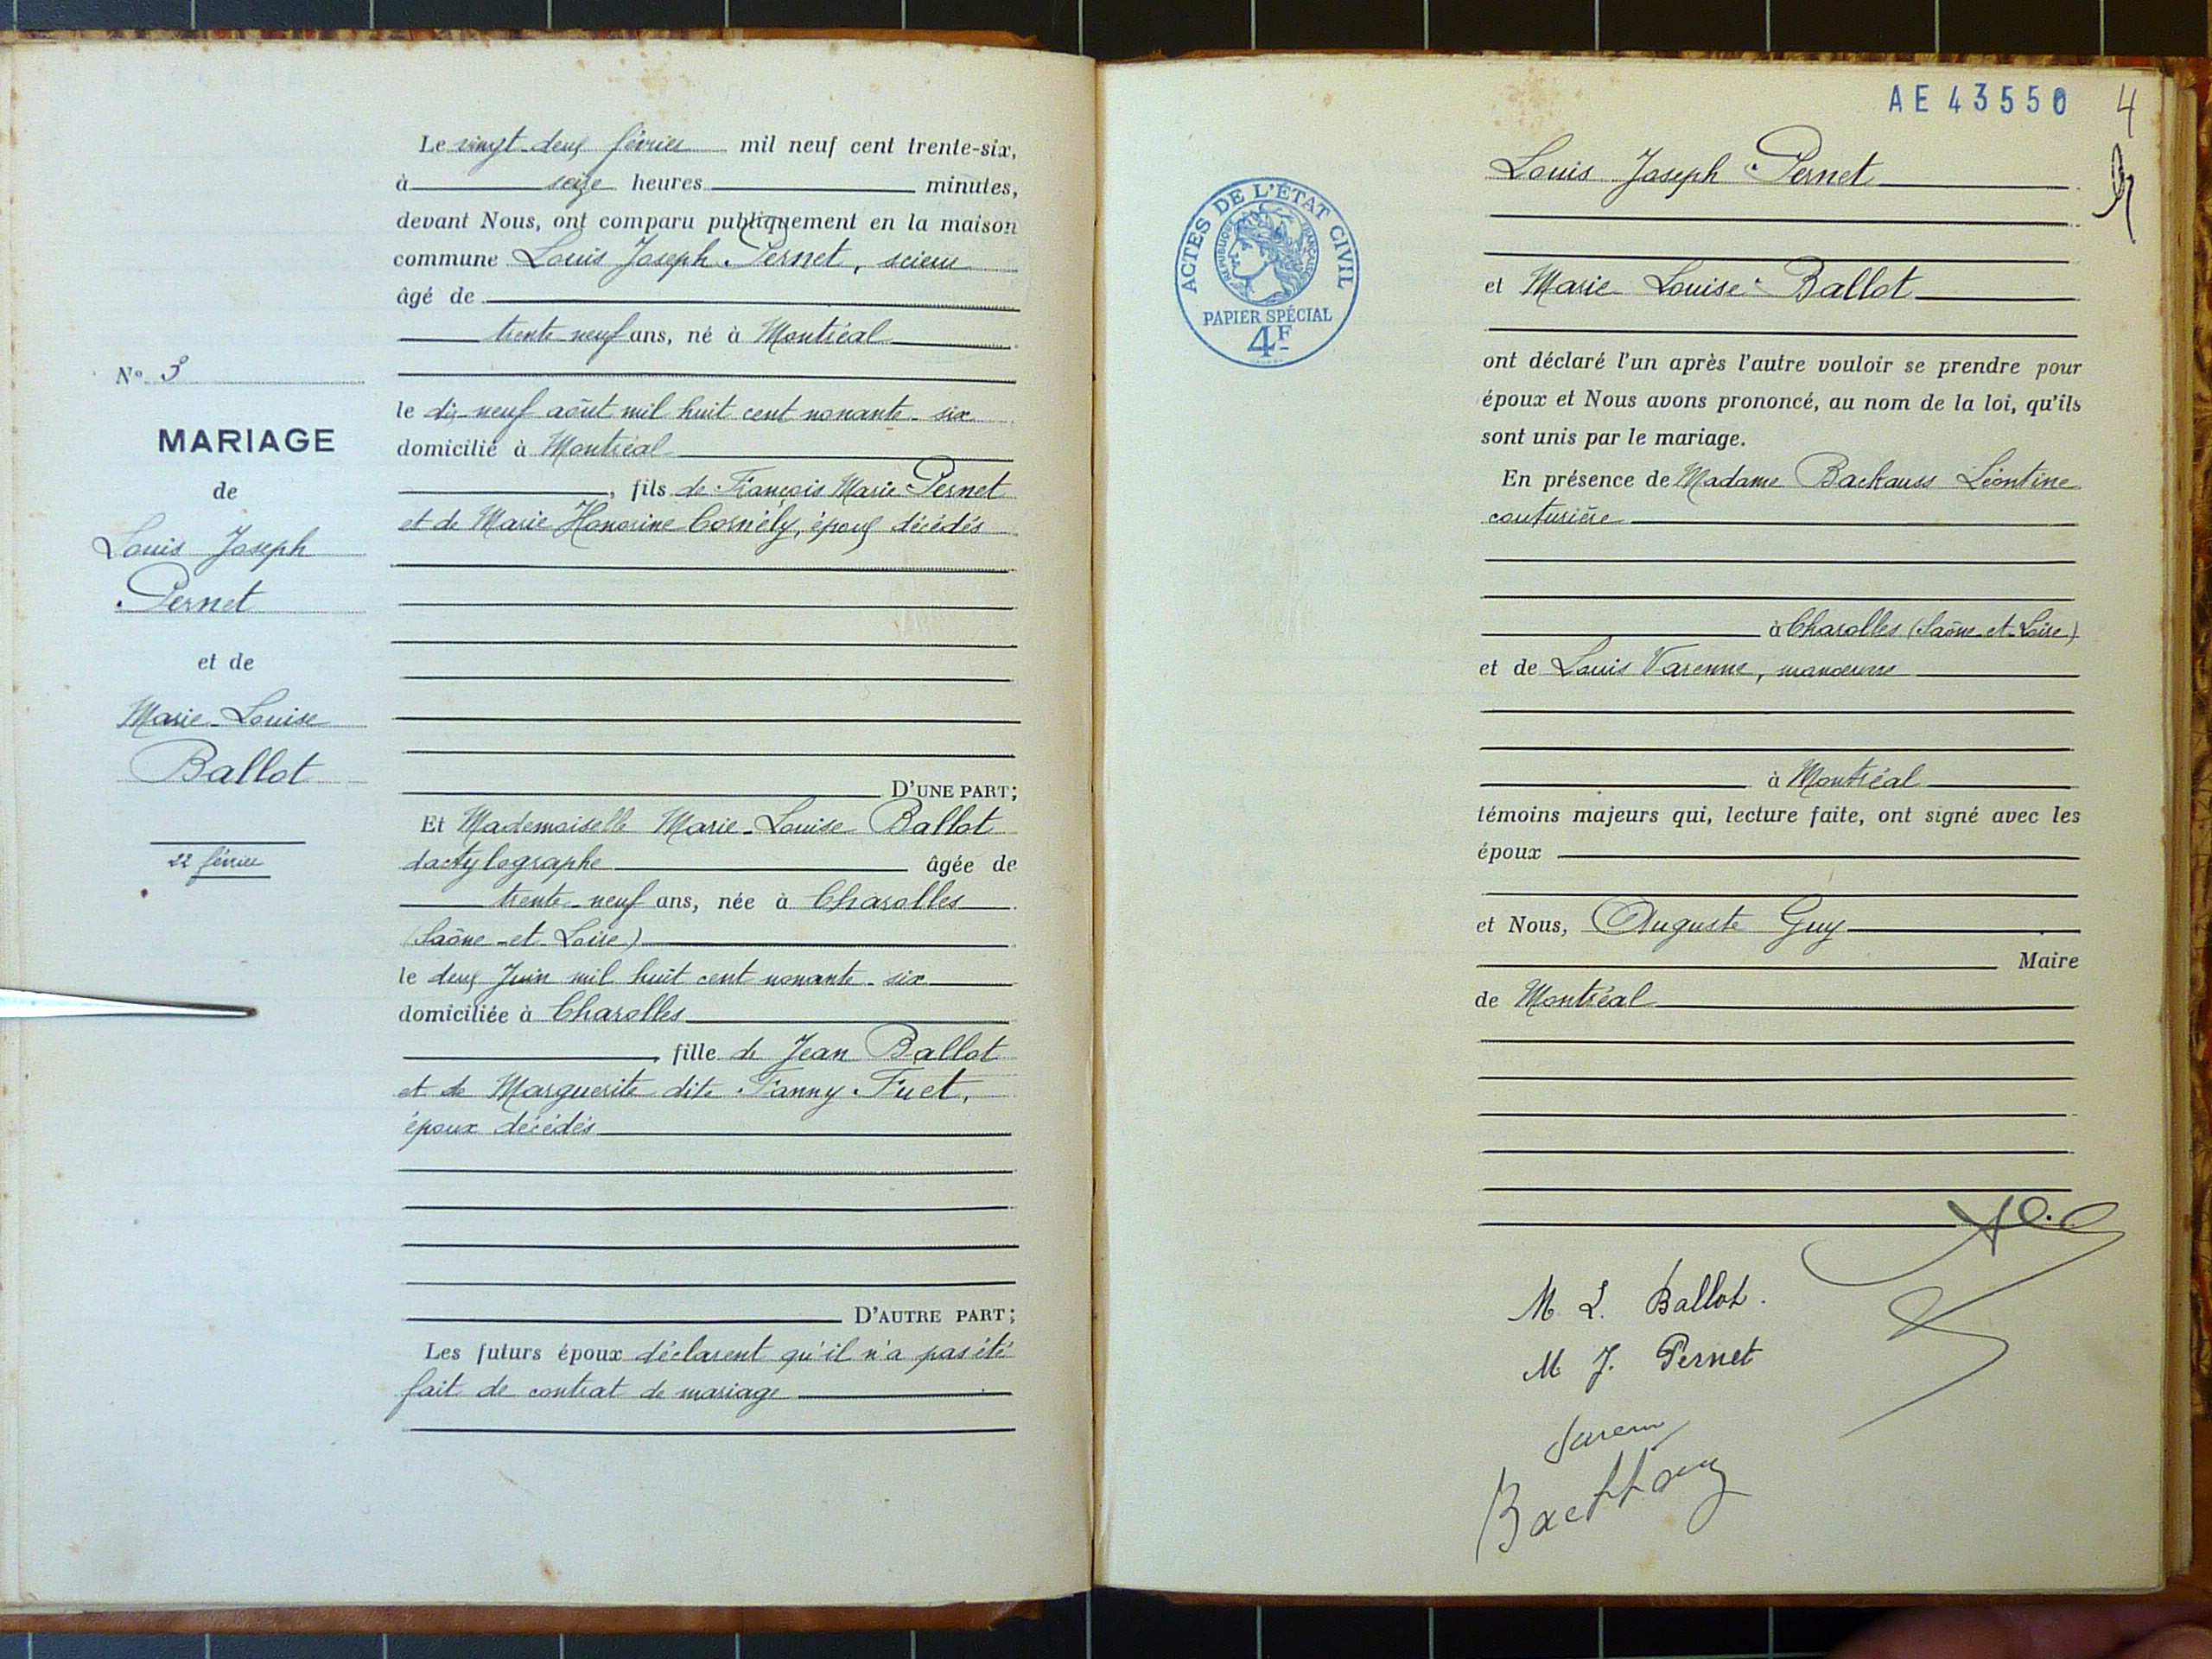 Le vingt-deux février mil neuf cent trente-six,
à seize heures minutes,
devant Nous, ont comparu publiquement en la maison
commune Louis Joseph Pernet, scieur
âgé de
trente neuf ans, né à Montréal
le dix-neuf août mil huit cent nonante-six
domicilié à Montréal
, fils de François Marie Pernet
et de Marie Honorine Cornély, époux décédés
D'UNE PART;
Et Mademoiselle Marie-Louise Ballot
dactylographe âgée de
trente-neuf ans, née à Charolles
(Saône-et-Loire)
le deux Juin mil huit cent nonante-six
domiciliée à Charolles
, fille de Jean Ballot
et de Marguerite dite Fanny Fuet,
époux décédés
D'AUTRE PART;
Les futurs époux déclarent qu'il n'a pas été
fait de contrat de mariage
No 3
MARIAGE
de
Louis Joseph
Pernet
et de
Marie-Louise
Ballot
22 février
AE 43550
4
ACTES DE L'ÉTAT CIVIL
RÉPUBLIQUE FRANÇAISE
PAPIER SPÉCIAL
4F
Louis Joseph Pernet
et Marie Louise Ballot
ont déclaré l'un après l'autre vouloir se prendre pour
époux et Nous avons prononcé, au nom de la loi, qu'ils
sont unis par le mariage.
En présence de Madame Backauss Léontine
couturière
à Charolles (Saône-et-Loire)
et de Louis Varenne, manoeuvre
à Montréal
témoins majeurs qui, lecture faite, ont signé avec les
époux
et Nous, Auguste Guy
Maire
de Montréal
M L. Ballot.
M J. Pernet